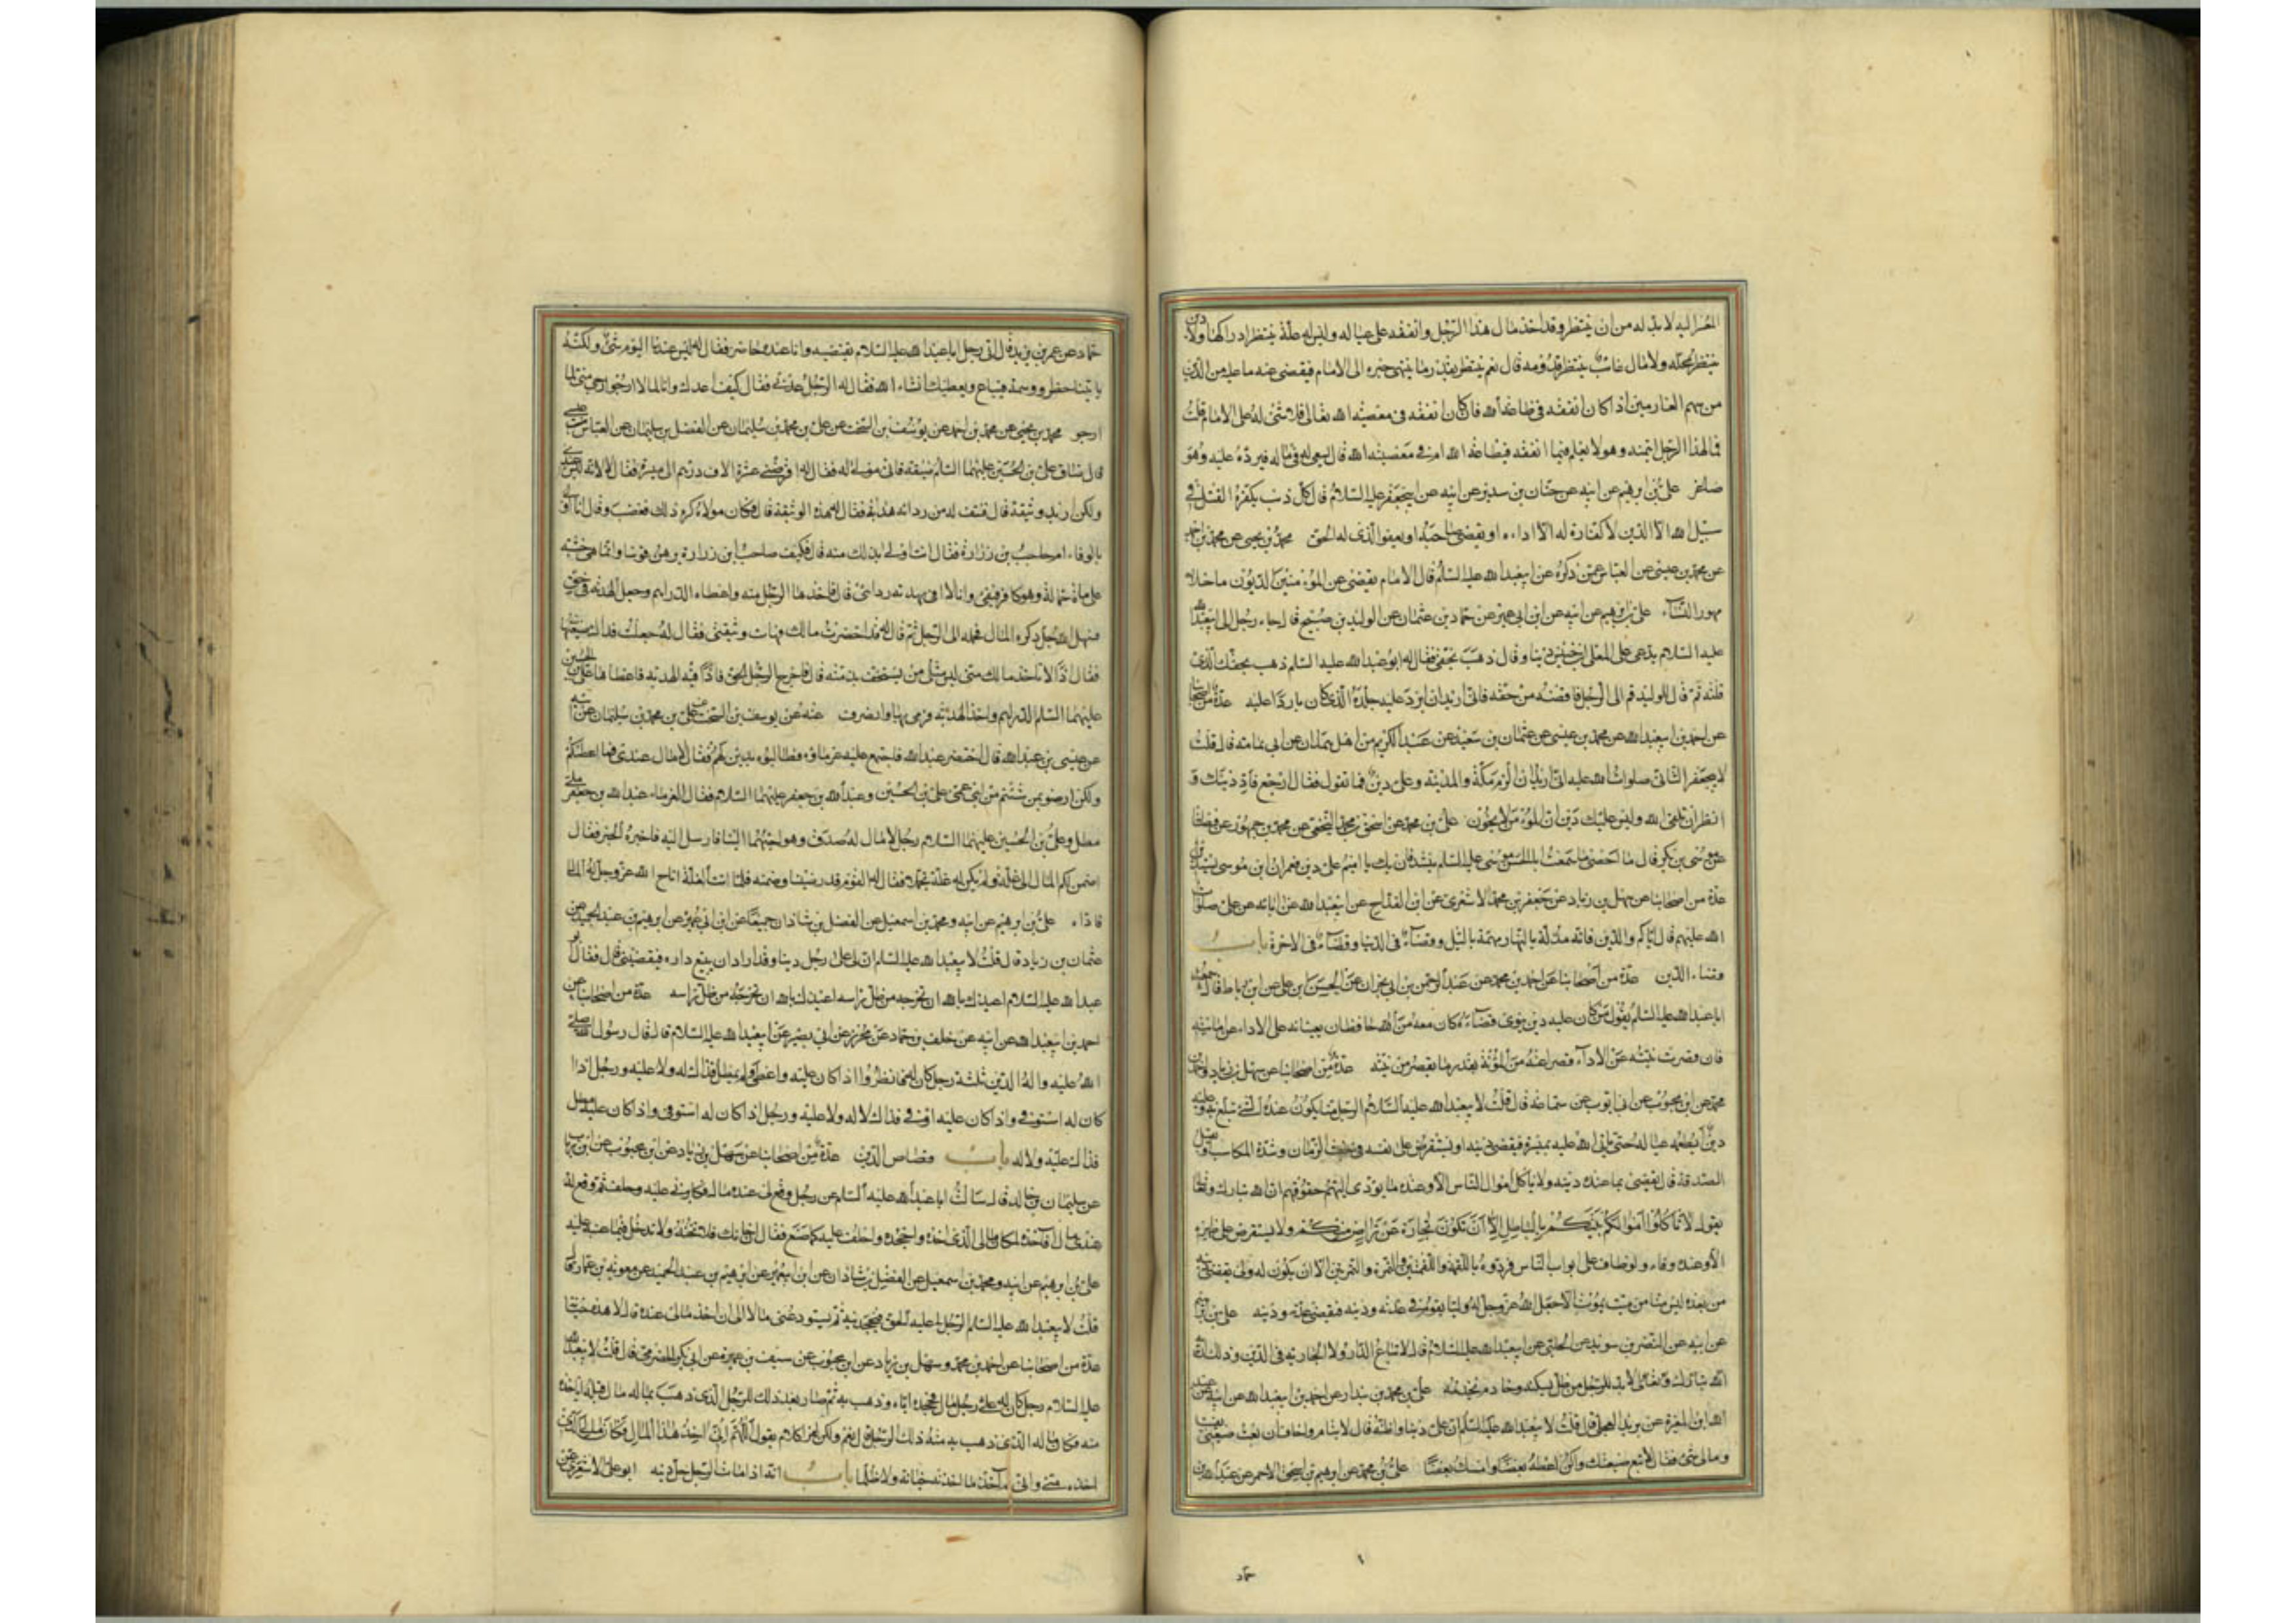 اليه لا بد له من ان ينتظر وقد اخذ مال هذا الرجل وانفقه على عياله وليس له غلة ينتظر ادراكها ولا دين
ينتظر محله ولا مال غائب ينتظر قدومه قال نعم ينتظر بقدر ما ينتهى خبره الى الامام فيقضى عنه ما عليه من الدين
من سهم الغارمين اذا كان انفقه فى طاعة الله فان كان انفقه فى معصية الله تعالى فلا شئ له على الامام قلت
فما لهذا الرجل ائتمنه وهو لا يعلم فيما انفقه فى طاعة الله ام فى معصية الله قال يسعى له فى ماله فيرده عليه وهو
صاغر على بن ابرهيم عن ابيه عن حنان بن سدير عن ابيه عن ابيجعفر عليه السلام قال كل ذنب يكفره القتل فى
سبيل الله الا الدين لا كفارة له الا اداءه او يقضى صاحبه او يعفو الذى له الحق محمد بن يحيى عن محمد بن احمد
عن محمد بن عيسى عن العباس عمن ذكره عن ابيعبدالله عليه السلام قال الامام يقضى عن المؤمنين الديون ما خلا
مهور النساء على بن ابرهيم عن ابيه عن ابن ابي عمير عن حماد بن عثمان عن الوليد بن صبيح قال جاء رجل الى ابيعبدالله
عليه السلام يدعى على المعلى بن خنيس دينا وقال ذهب بحقى فقال له ابو عبدالله عليه السلام ذهب بحقك الذى
قتله ثم قال للوليد قم الى الرجل فاقضه من حقه فانى اريد ان ابرد عليه جلده الذى كان باردا عليه عدة من اصحابنا
عن احمد بن ابيعبدالله عن محمد بن عيسى عن عثمان بن سعيد عن عبدالكريم من اهل همدان عن ابى ثمامة قال قلت
لابيجعفر الثانى صلوات الله عليه انى اريد ان الزم مكة والمدينة وعلى دين فما تقول فقال ارجع فاد دينك و
انظر ان تلقى الله وليس عليك دين ان المؤمن لا يخون على بن محمد عن اسحق بن محمد النخعى عن محمد بن جمهور عن فضالة
عن موسى بن بكر قال ما احصى ما سمعت ابا الحسن موسى عليه السلام ينشد فان يك يا اميم على دين فعمران بن موسى يستدين
عدة من اصحابنا عن سهل بن زياد عن جعفر بن محمد الاشعرى عن ابن القداح عن ابيعبدالله عن ابائه عن على صلوات
الله عليهم قال اياكم والدين فانه مذلة بالنهار مهمة بالليل وقضاء فى الدنيا وقضاء فى الاخرة باب
قضاء الدين عدة من اصحابنا عن احمد بن محمد عن عبدالرحمن بن ابى نجران عن الحسن بن على بن رباط قال سمعت
ابا عبدالله عليه السلام يقول من كان عليه دين ينوى قضاءه كان معه من الله حافظان يعينانه على الاداء عن امانته
فان قصرت نيته عن الاداء قصرا عنه من المؤنة بقدر ما يقصر من نيته عدة من اصحابنا عن سهل بن زياد واحمد بن
محمد عن ابن محبوب عن ابى ايوب عن سماعة قال قلت لابيعبدالله عليه السلام الرجل منا يكون عنده الشئ يتبلغ به وعليه
دين ايطعمه عياله حتى ياتى الله عليه بميسرة فيقضى دينه او يستقرض على نفسه فى خبث الزمان وشدة المكاسب او يقبل
الصدقة قال يقضى بما عنده دينه ولا ياكل اموال الناس الا وعنده ما يودى اليهم حقوقهم ان الله تبارك وتعالى
يقول لا تاكلوا اموالكم بينكم بالباطل الا ان تكون تجارة عن تراض منكم ولا يستقرض على ظهره
الا وعنده وفاء ولو طاف على ابواب الناس فردوه باللقمة واللقمتين والتمرة والتمرتين الا ان يكون له ولى يقضى دينه
من بعده ليس منا من ميت يموت الا جعل الله عز وجل له وليا يقوم فى عدته ودينه فيقضى عدته ودينه على بن ابرهيم
عن ابيه عن النضر بن سويد عن الحلبى عن ابيعبدالله عليه السلام قال لا تباع الدار ولا الجارية فى الدين وذلك
انه لابد للرجل من ظل يسكنه وخادم يخدمه على بن محمد بن بندار عن احمد بن ابيعبدالله عن ابيه عن عبد
الله بن المغيرة عن بريد العجلى قال قلت لابيعبدالله عليه السلام ان على دينا واظنه قال لايتام واخاف ان بعت ضيعتى بقيت
ومالى شئ فقال لا تبع ضيعتك ولكن اعطه بعضا وامسك بعضا على بن محمد عن ابرهيم بن اسحق الاحمر عن عبدالله بن
حماد
حماد عن عمر بن يزيد قال اتى رجل ابا عبدالله عليه السلام يقتضيه وانا عنده حاضر فقال له ليس عندنا اليوم شئ ولكنه
ياتينا خطر ووسمة فتباع ونعطيك انشاء الله فقال له الرجل عدنى فقال كيف اعدك وانا لما لا ارجو ارجى منى لما
ارجو محمد بن يحيى عن محمد بن احمد عن يوسف بن السخت عن على بن محمد بن سليمان عن الفضل بن سليمان عن العباس بن عيسى
قال ضاق على بن الحسين عليهما السلام ضيقة فاتى مولى له فقال له اقرضنى عشرة الاف درهم الى ميسرة فقال لا لانه ليس عندى
ولكن اريد وثيقة قال فنتف له من ردائه هدبة فقال له هذه الوثيقة قال فكان مولاه كره ذلك فغضب وقال انا اولى
بالوفاء ام حاجب بن زرارة فقال انت اولى بذلك منه قال فكيف صار حاجب بن زرارة يرهن قوسا وانما هى خشبة
على مائة حمالة وهو كافر فيفى وانا لا افى بهدبة ردائى قال فاخذها الرجل منه واعطاه الدراهم وجعل الهدبة فى حق
فسهل الله جل ذكره المال فحمله الى الرجل ثم قال له قد احضرت مالك فهات وثيقتى فقال له جعلت فداك ضيعتها
فقال اذا لا تاخذ مالك منى ليس مثلى من يستخف بذمته قال فاخرج الرجل الحق فاذا فيه الهدبة فاعطاها على بن الحسين
عليهما السلام الدراهم واخذ الهدبة فرمى بها وانصرف عنه عن يوسف بن السخت عن على بن محمد بن سليمان عن ابيه
عن عيسى بن عبدالله قال احتضر عبدالله فاجتمع عليه غرماؤه فطالبوه بدين لهم فقال لا مال عندى فاعطيكم
ولكن ارضوا بمن شئتم من ابنى عمى على بن الحسين وعبدالله بن جعفر عليهما السلام فقال الغرماء عبدالله بن جعفر ملى
مطل وعلى بن الحسين عليهما السلام رجل لا مال له صدوق وهو احبهما الينا فارسل اليه فاخبره الخبر فقال
اضمن لكم المال الى غلة ولم يكن له غلة تجملا فقال القوم قد رضينا وضمنه فلما اتت الغلة اتاح الله عز وجل له المال
فاداه على بن ابرهيم عن ابيه ومحمد بن اسمعيل عن الفضل بن شاذان جميعا عن ابن ابى عمير عن ابرهيم بن عبدالحميد عن
عثمان بن زياد قال قلت لابيعبدالله عليه السلام ان لى على رجل دينا وقد اراد ان يبيع داره فيقضينى قال فقال ابو
عبدالله عليه السلام اعيذك بالله ان تخرجه من ظل راسه اعيذك بالله ان تخرجه من ظل راسه عدة من اصحابنا عن
احمد بن ابيعبدالله عن ابيه عن خلف بن حماد عن محرز عن ابى بصير عن ابيعبدالله عليه السلام قال قال رسول الله صلى
الله عليه واله الدين ثلثة رجل كان له فانظر واذا كان عليه واعطى ولم يمطل فذاك له ولا عليه ورجل اذا
كان له استوفى واذا كان عليه اوفى فذاك لا له ولا عليه ورجل اذا كان له استوفى واذا كان عليه مطل
فذاك عليه ولا له باب قصاص الدين عدة من اصحابنا عن سهل بن زياد عن ابن محبوب عن ابن رياب
عن سليمان بن خالد قال سالت ابا عبدالله عليه السلام عن رجل وقع لى عنده مال فكابرنى عليه وحلف ثم وقع له
عندى مال فآخذه لمكان مالى الذى اخذه واجحده واحلف عليه كما صنع فقال ان خانك فلا تخنه ولا تدخل فيما عبته عليه
على بن ابرهيم عن ابيه ومحمد بن اسمعيل عن الفضل بن شاذان عن ابن ابيعمير عن ابرهيم بن عبدالحميد عن معوية بن عمار قال
قلت لابيعبدالله عليه السلام الرجل يكون لى عليه الحق فيجحدنيه ثم يستودعنى مالا الى ان اخذ مالى عنده قال لا هذه خيانة
عدة من اصحابنا عن احمد بن محمد وسهل بن زياد عن ابن محبوب عن سيف بن عميرة عن ابى بكر الحضرمى قال قلت لابيعبدالله
عليه السلام رجل كان له على رجل مال فجحده اياه وذهب به ثم صار بعد ذلك للرجل الذى ذهب بماله مال قبله ايأخذه
منه مكان ماله الذى ذهب به منه ذلك الرجل قال نعم ولكن لهذا كلام يقول اللهم انى اخذ هذا المال مكان مالى الذى
اخذه منى وانى لم آخذ ما اخذته خيانة ولا ظلما باب انه اذا مات الرجل حل دينه ابو على الاشعرى عن